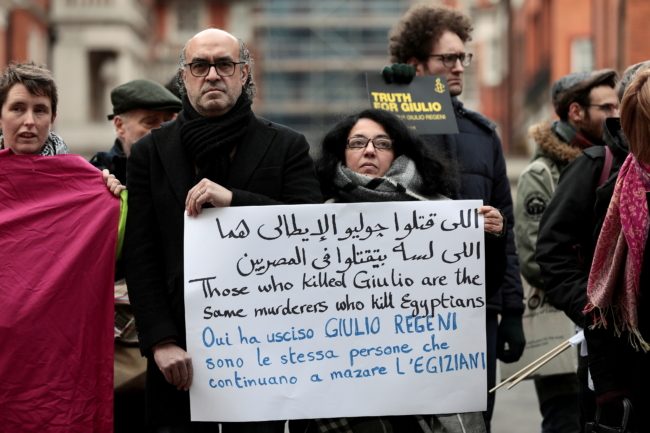 TRUTH
FOR GIULIO
GIULIO REGENI
اللى قتلوا جوليو الإيطالى هما
اللى لسة بيقتلوا فى المصريين
Those who killed Giulio are the
same murderers who kill Egyptians
Oui ha usciso GIULIO REGENI
sono le stessa persone che
continuano a mazare L'EGIZIANI